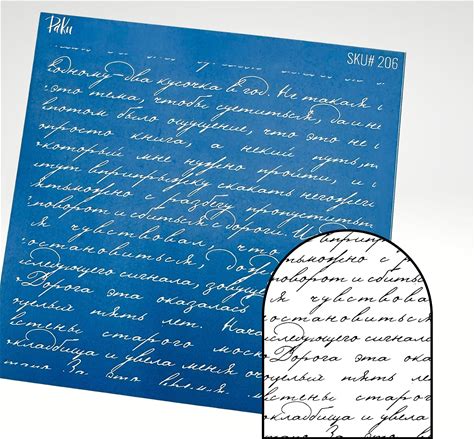 Paku
SKU# 206
одному-два кусочка в год. Не такая
это тема, чтобы суетиться, да и не
этом было ощущение, что это не
просто книга, а некий путь,
который мне нужно пройти, и
тут вприпрыжку скакать негоже
тьможно с разбегу пропустить
поворот и сбиться с дороги. И
я чувствовал, что
остановиться,
следующего сигнала, зовущ
Дорога эта оказалась
целый пять лет. Нача
стены старого моск
кладбища и увела меня
вприпры
тьможно с
поворот и сбить
я чувствова
остановиться
следующего сигнала
Дорога эта ока
целый пять ле
стены старого
кладбища и увела